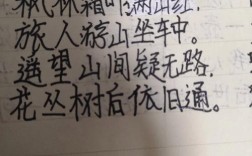 旅人游山坐车中。
遥望山间疑无路,
花丛树后依旧通。